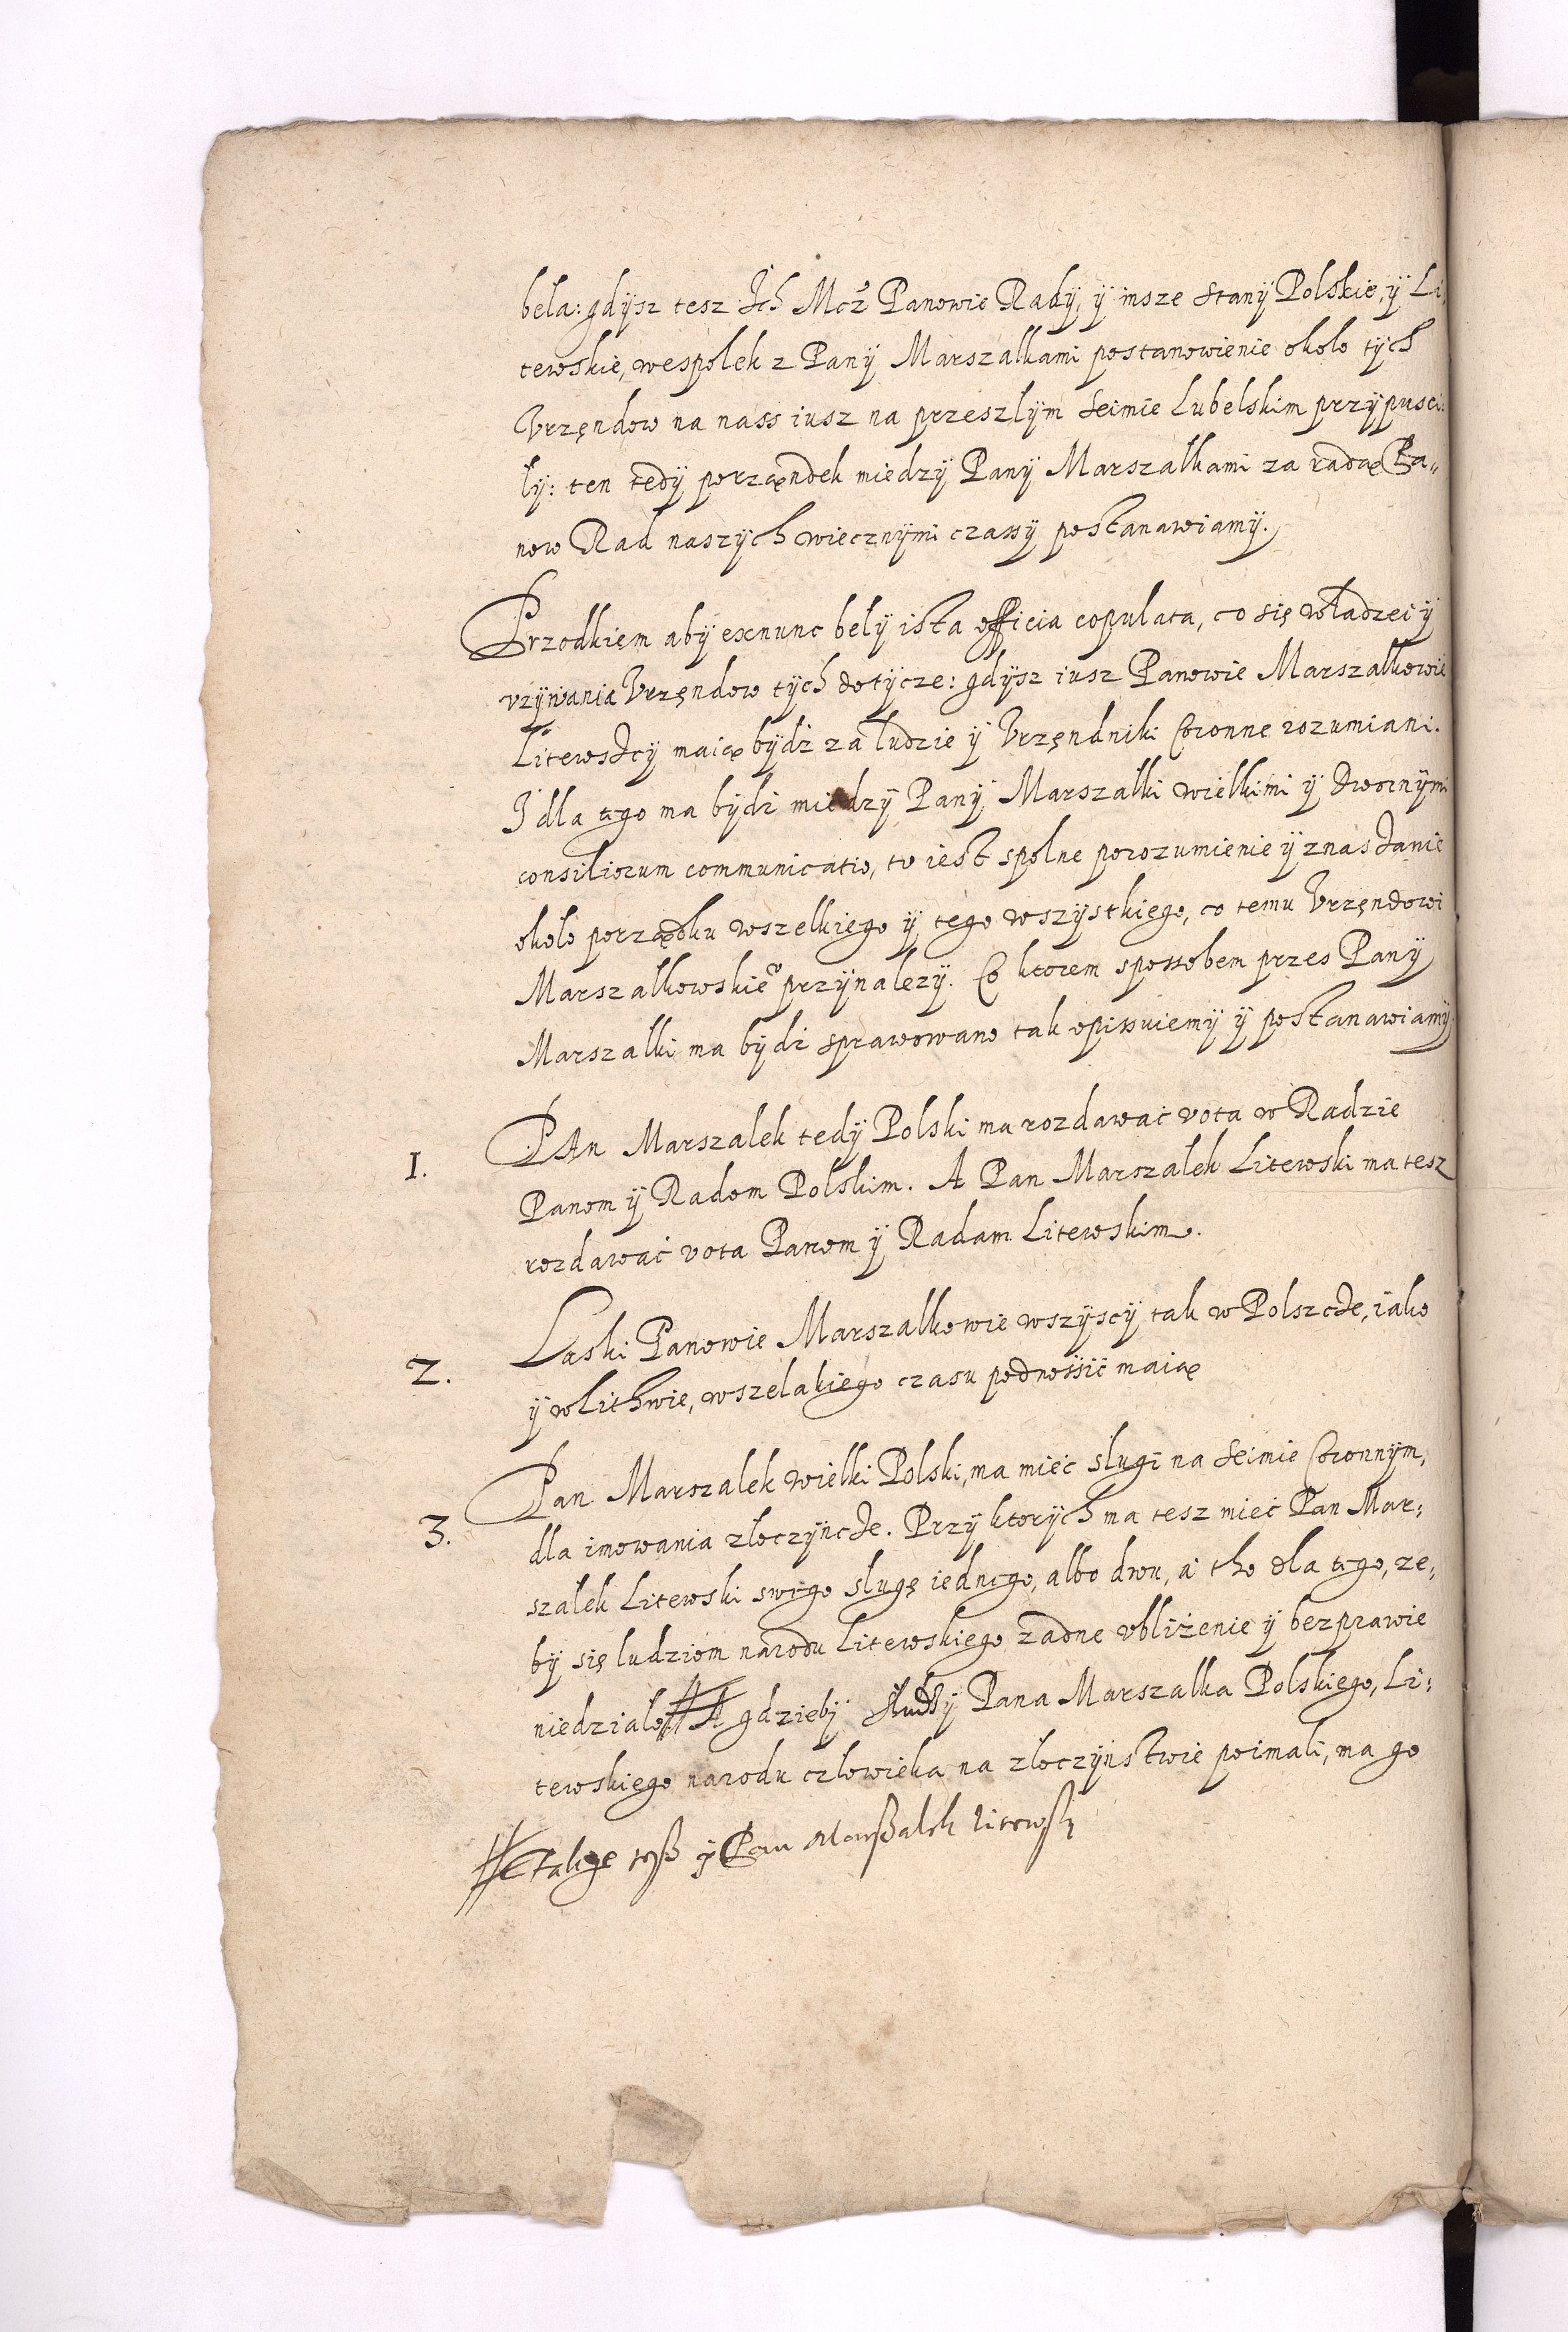 bela: gdÿsz tesz Ich Mcż Panowie Radÿ, ÿ insze Stanÿ Polskie, ÿ Li,
tewskie, wespolek z Panÿ Marszalkami postanowienie około tÿch
Vrzęndow na nass iusz na przeszlÿm Seimie Lubelskim przÿpusci:
lÿ: ten tedÿ porządek miedzÿ Panÿ Marszalkami za radą Pa„
now Rad naszÿch wiecznÿmi czassÿ postanawiamÿ.
Przodkiem abÿ exnunc belÿ ista officia copulata, co się władzei ÿ
vzÿwania Vrzęndow tÿch dotÿcze: gdÿsz iusz Panowie Marszalkowie
Litewsdcÿ maią bÿdz za ludzie ÿ Vrzęndniki Coronne rozumiani.
I dla tego ma bÿdz miedzÿ Panÿ Marszalki wielkimi ÿ dwornÿmi
consiliorum communicatio, to iest spolne porozumienie ÿ znasdanie
około porządku wszelkiego ÿ tego wszÿstkiego, co temu Vrzęndowi
Marszalkowskieº przÿnalezÿ. Co ktorem sposobem przes Panÿ
Marszalki ma bÿdz sprawowano tak opissuiemÿ ÿ postanawiamÿ.
1. PAn Marszalek tedÿ Polski ma rozdawać vota w Radzie
Panom ÿ Radom Polskim. A Pan Marszalek Litewski ma tesz
rozdawać vota Panom ÿ Radam Litewskim.
2. Laski Panowie Marszalkowie wszÿscÿ tak w Polszcde, iako
ÿ w Lithwie, wszelakiego czasu podnossić maią
3. Pan Marszalek wielki Polski, ma mieć slugi na Seimie Coronnÿm,
dla imowania zloczÿncde. Przÿ ktorÿch ma tesz mieć Pan Mar:
szalek Litewski swego slugę iednego, albo dwu, a tho dla tego, ze,
bÿ się ludziom narodu Litewskiego zadne vbliżenie ÿ bezprawie
niedzialo # A gdziebÿ Sludzÿ Pana Marszalka Polskiego, Li:
tewskiego narodu czlowieka na zloczÿnstwie poimali, ma go
# takze tesß ÿ Pan Marßalek Litewsky